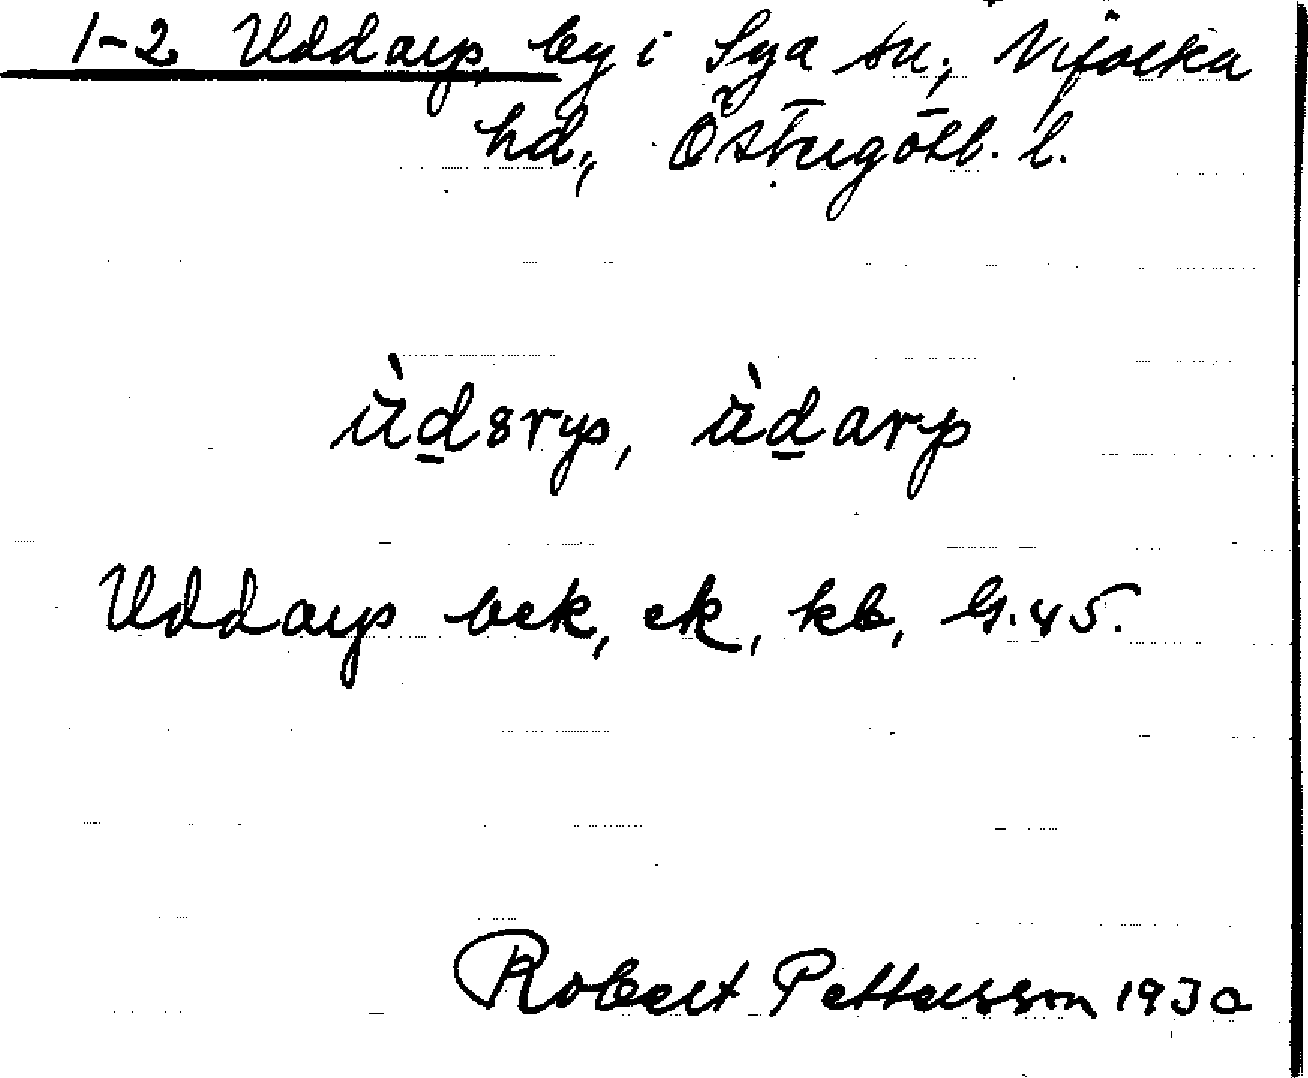 1-2 Uddarp, by i Sya sn, Vifolka
hd, Östergötl. l.
ùd̲8rp, ùd̲arp
Uddarp bek, ek, kb, G. 45.
Robert Pettersson 1930